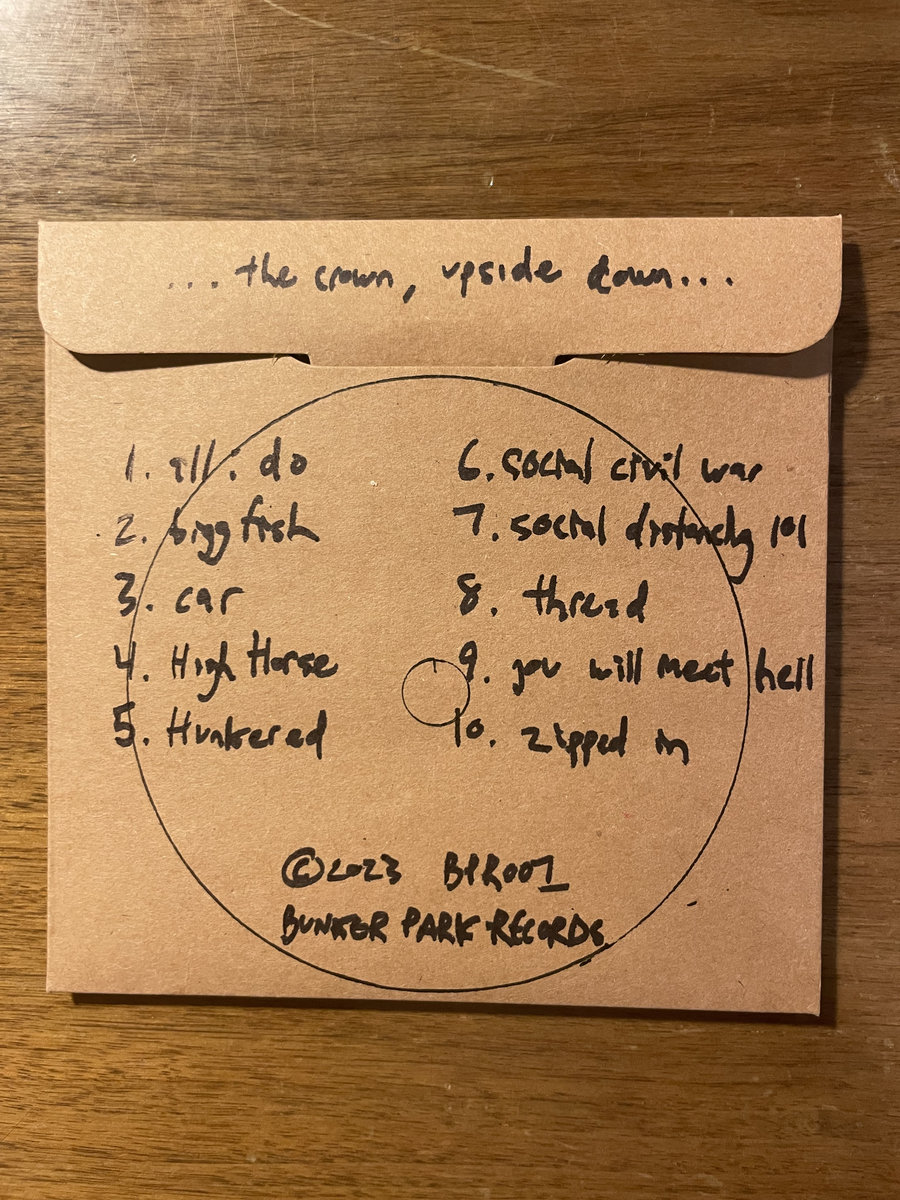 ... the crown, upside down...
1. all i do
2. bigg fish
3. car
4. High Horse
5. Hunkered
6. social civil war
7. social distancing 101
8. thread
9. you will meet hell
10. zipped in
©2023 BPR001
BUNKER PARK RECORDS